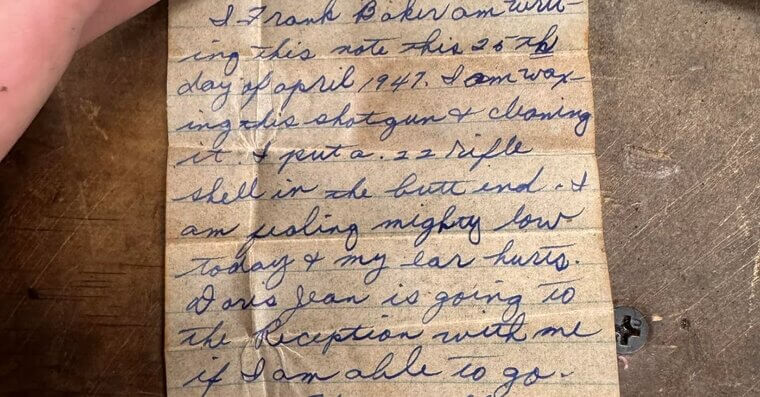 I Frank Baker am writ-
ing this note this 25th
day of april 1947. I am wax-
ing this shotgun & cleaning
it. I put a .22 rifle
shell in the butt end. I
am feeling mighty low
today & my ear hurts.
Doris Jean is going to
the Reception with me
if I am able to go.